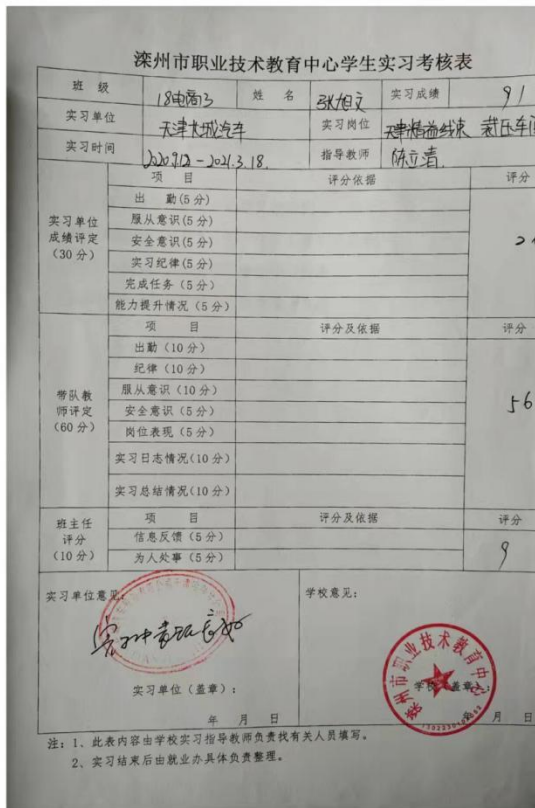 滦州市职业技术教育中心学生实习考核表
班 级 18电商3 姓 名 张旭文 实习成绩 91
实习单位 天津长城汽车 实习岗位 天津精益线束 裁压车间
实习时间 2020.9.12-2021.3.18. 指导教师 陈立清
项 目 评分依据 评分
实习单位成绩评定（30分）
出 勤(5分)
服从意识(5分)
安全意识(5分)
实习纪律(5分)
完成任务（5分）
能力提升情况（5分）
项 目 评分及依据 评分
带队教师评定（60分） 56
出勤（10分）
纪律（10分）
服从意识（10分）
安全意识（5分）
岗位表现（5分）
实习日志情况(10分)
实习总结情况(10分)
项 目 评分及依据 评分
班主任评分（10分） 9
信息反馈（5分）
为人处事（5分）
实习单位意见： 学校意见：
实习中表现良好
滦州市职业技术教育中心
实习单位（盖章）： 学校（盖章）：
年 月 日 年 月 日
注：1、此表内容由学校实习指导教师负责找有关人员填写。
2、实习结束后由就业办具体负责整理。